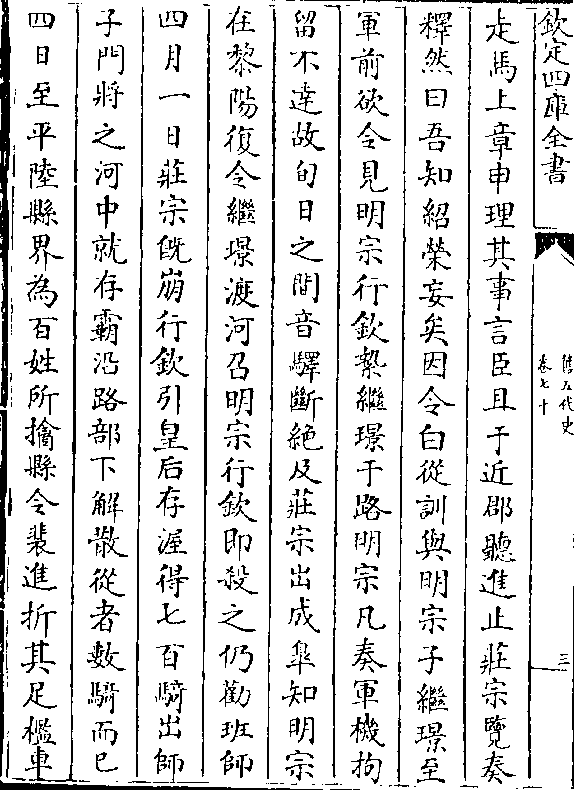 欽定四庫全書
舊五代史
卷七十
三
走馬上章申理其事言臣且于近郡聽進止莊宗覽奏
釋然曰吾知紹榮妄矣因令白從訓與明宗子繼璟至
軍前欲令見明宗行欽縶繼璟于路明宗凡奏軍機拘
留不達故旬日之間音驛斷絶及莊宗出成臯知明宗
在黎陽復令繼璟渡河召明宗行欽即殺之仍勸班師
四月一日莊宗既崩行欽引皇后存渥得七百騎出師
子門將之河中就存霸沿路部下解散從者數騎而已
四日至平陸縣界為百姓所擒縣令裴進折其足檻車